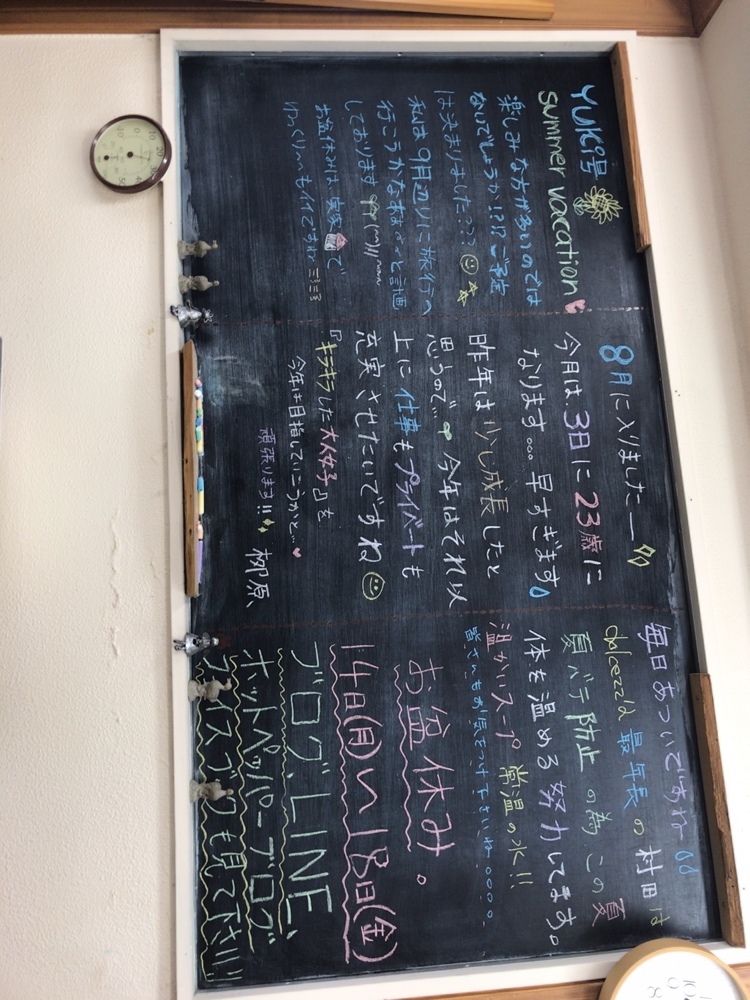 YUKI号
summer vacation
楽しみな方が多いのでは
ないでしょうか!?!? ご予定
は決まりましたか???
私は9月辺りに旅行へ
行こうかなぁなぁ〜と計画
しております
お盆休みは実家で
ゆっくり〜も何ですかね
8月に入りましたー
今月は3日に23歳に
なります。。。早すぎます
昨年は少し成長したと
思うので… 今年はそれ以
上に仕事もプライベートも
充実させたいですね
『キラキラした大人女子』を
今年は目指していこうかと…
頑張ります!! 柳原、
毎日あついですね
dolcezza 最年長の村田は
夏バテ防止の為この夏
体を温める努力してます。
温かいスープ 常温の水!!
皆さんもお気をつけて下さいね。。。。
お盆休み。
14日(月)〜18日(金)
ブログ、LINE、
ホットペッパーブログ
フェイスブックも見て下さい!!